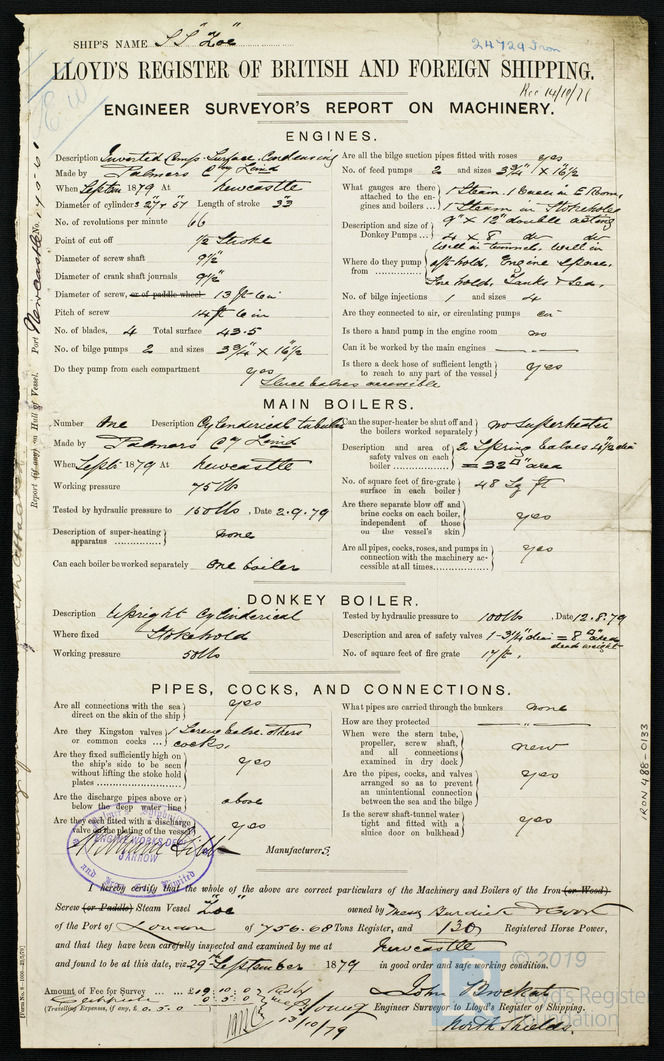 SHIP'S NAME S S "Zoe"
24729 Iron
LLOYD'S REGISTER OF BRITISH AND FOREIGN SHIPPING.
Rec 14/10/71
ENGINEER SURVEYOR'S REPORT ON MACHINERY.
ENGINES.
Description Inverted Comp. Surface Condensing
Made by Palmers Coy Limd
When Septm 1879 At Newcastle
Diameter of cylinders 27" & 51 Length of stroke 33"
No. of revolutions per minute 66
Point of cut off 1/2 Stroke
Diameter of screw shaft 9 1/2"
Diameter of crank shaft journals 9 1/2"
Diameter of screw, or of paddle wheel 13 ft 6 in
Pitch of screw 14 ft 6 in
No. of blades, 4 Total surface 43.5
No. of bilge pumps 2 and sizes 3 3/4" x 16 1/2
Do they pump from each compartment yes
Sluice valves accessible
Are all the bilge suction pipes fitted with roses yes
No. of feed pumps 2 and sizes 3 3/4" x 16 1/2
What gauges are there attached to the engines and boilers ... 1 Steam. 1 Vacm in E Room,
1 Steam in Stokehole
Description and size of Donkey Pumps ... 9" x 12" double acting
4 x 8 do do
Where do they pump from Well in tunnel, Well in
aft hold, Engine Space,
Fore hold, Tanks & Sea.
No. of bilge injections 1 and sizes 4
Are they connected to air, or circulating pumps cir
Is there a hand pump in the engine room no
Can it be worked by the main engines
Is there a deck hose of sufficient length to reach to any part of the vessel yes
MAIN BOILERS.
Number One Description Cylinderical tubular
Made by Palmers Coy Limd
When Septr 1879 At Newcastle
Working pressure 75 lbs
Tested by hydraulic pressure to 150 lbs. Date 2.9.79
Description of super-heating apparatus none
Can each boiler be worked separately One boiler
Can the super-heater be shut off and the boilers worked separately no superheater
Description and area of safety valves on each boiler 2 Spring Valves 4 1/2 dia
= 32 □" area
No. of square feet of fire-grate surface in each boiler 48 Sq ft
Are there separate blow off and brine cocks on each boiler, independent of those on the vessel's skin yes
Are all pipes, cocks, roses, and pumps in connection with the machinery accessible at all times yes
DONKEY BOILER.
Description Upright Cylinderical
Where fixed Stokehold
Working pressure 50 lbs
Tested by hydraulic pressure to 100 lbs. Date 12.8.79
Description and area of safety valves 1 - 3 1/4" dia = 8 □" area
dead weight
No. of square feet of fire grate 17 ft.
PIPES, COCKS, AND CONNECTIONS.
Are all connections with the sea direct on the skin of the ship yes
Are they Kingston valves or common cocks ... 1 Large Valve. others
cocks.
Are they fixed sufficiently high on the ship's side to be seen without lifting the stoke hold plates yes
Are the discharge pipes above or below the deep water line above
Are they each fitted with a discharge valve on the plating of the vessel yes
What pipes are carried through the bunkers none
How are they protected "
When were the stern tube, propeller, screw shaft, and all connections examined in dry dock new
Are the pipes, cocks, and valves arranged so as to prevent an unintentional connection between the sea and the bilge yes
Is the screw shaft-tunnel water tight and fitted with a sluice door on bulkhead yes
ENGINE WORKS DEPT
JARROW
and Iron Company Limited
Manufacturers.
I hereby certify that the whole of the above are correct particulars of the Machinery and Boilers of the Iron (or Wood)
Screw (or Paddle) Steam Vessel "Zoe" owned by Messrs Burdick & Cook
of the Port of London of 756.68 Tons Register, and 130 Registered Horse Power,
and that they have been carefully inspected and examined by me at Newcastle
and found to be at this date, viz 29th September 1879 in good order and safe working condition.
Amount of Fee for Survey ... ... £19. 10. 0
Certificate 0. 5. 0
(Travelling Expenses, if any, £ 0. 5. 0
13/10/79
John Brockat
Engineer Surveyor to Lloyd's Register of Shipping.
North Shields.
Port Newcastle No.
Report (if any) on Hull of Vessel.
IRON 488-0133
© 2019
Lloyd's Register
Foundation